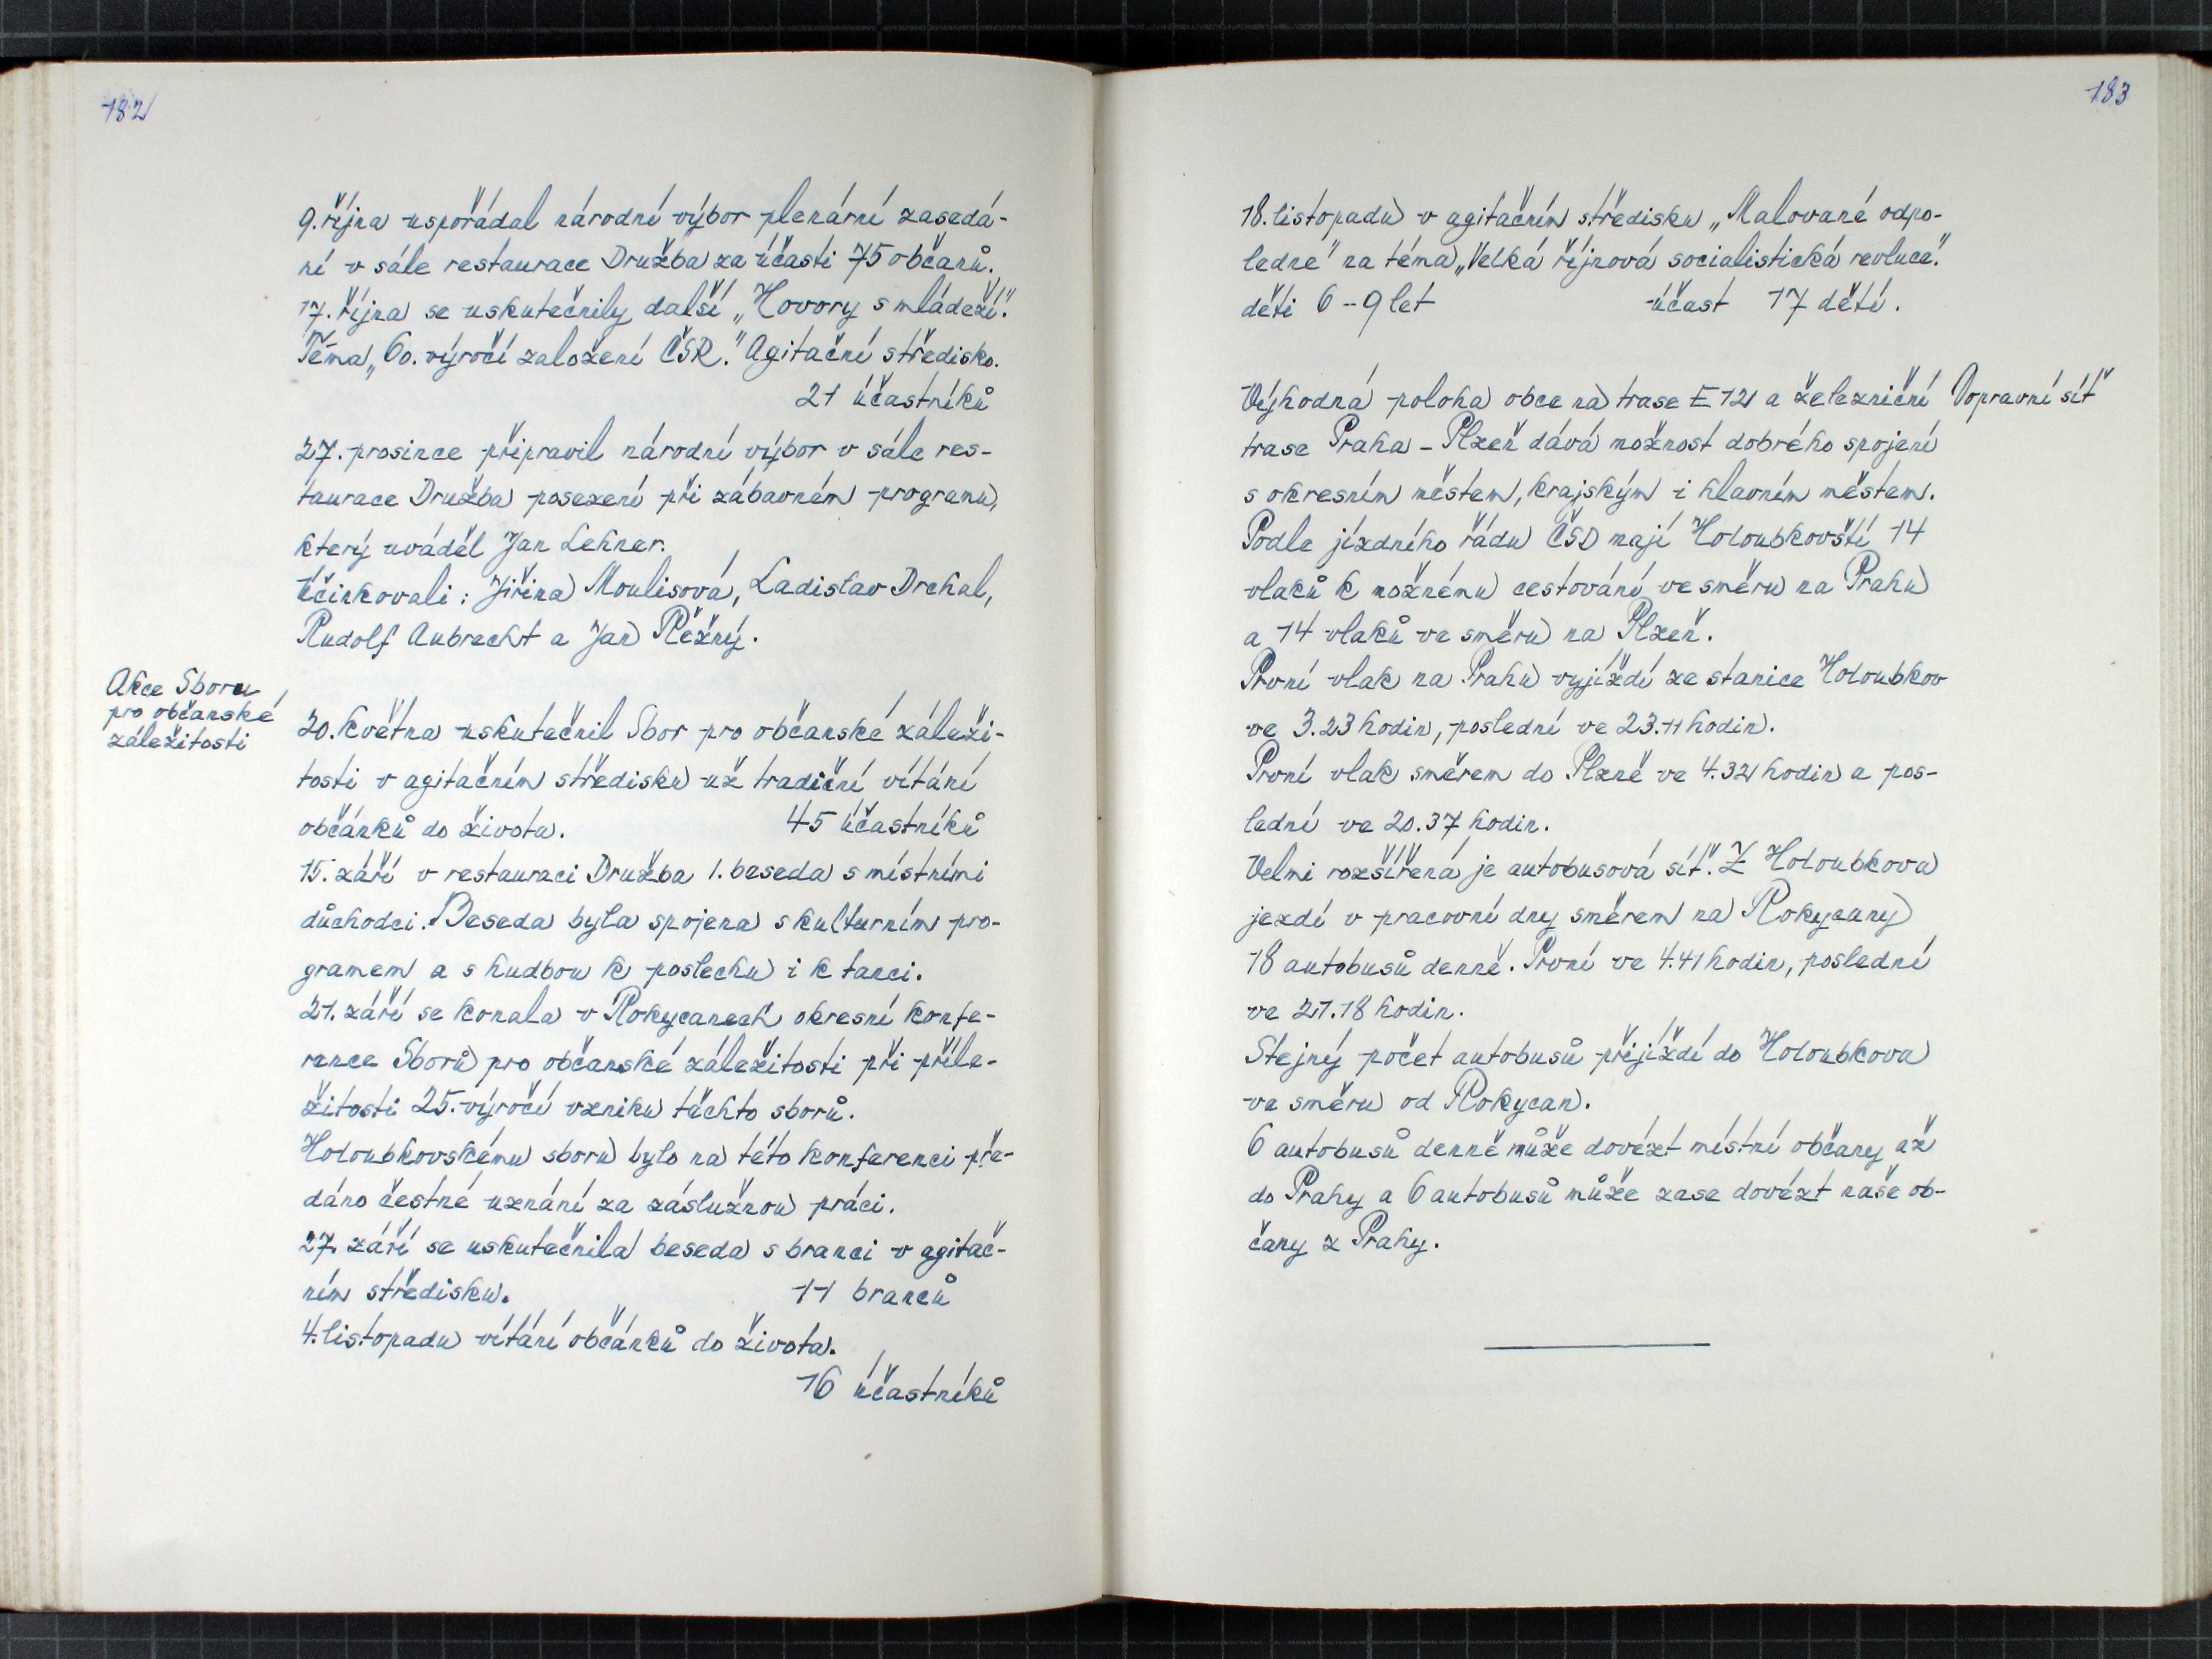 182
9. října uspořádal národní výbor plenární zasedá-
ní v sále restaurace Družba za účasti 75 občanů.
17. října se uskutečnily další „Hovory s mládeží".
Téma „60. výročí založení ČSR." Agitační středisko.
21 účastníků
27. prosince připravil národní výbor v sále res-
taurace Družba posezení při zábavném programu,
který uváděl Jan Lehner.
Účinkovali: Jiřina Moulisová, Ladislav Drchal,
Rudolf Aubrecht a Jan Řežný.
Akce Sboru
pro občanské
záležitosti
20. května uskutečnil Sbor pro občanské záleži-
tosti v agitačním středisku už tradiční vítání
občánků do života. 45 účastníků
15. září v restauraci Družba 1. beseda s místními
důchodci. Beseda byla spojena s kulturním pro-
gramem a s hudbou k poslechu i k tanci.
21. září se konala v Rokycanech okresní konfe-
rence Sborů pro občanské záležitosti při příle-
žitosti 25. výročí vzniku těchto sborů.
Holoubkovskému sboru bylo na této konferenci pře-
dáno čestné uznání za záslužnou práci.
27. září se uskutečnila beseda s branci v agitač-
ním středisku. 11 branců
4. listopadu vítání občánků do života.
16 účastníků
183
18. listopadu v agitačním středisku „Malované odpo-
ledne" na téma „Velká říjnová socialistická revluce."
děti 6 - 9 let účast 17 dětí.
Výhodná poloha obce na trase E 12 a železniční
Dopravní síť
trase Praha - Plzeň dává možnost dobrého spojení
s okresním městem, krajským i hlavním městem.
Podle jízdního řádu ČSD mají Holoubkovští 14
vlaků k možnému cestování ve směru na Prahu
a 14 vlaků ve směru na Plzeň.
První vlak na Prahu vyjíždí ze stanice Holoubkov
ve 3.23 hodin, poslední ve 23.11 hodin.
První vlak směrem do Plzně ve 4.32 hodin a pos-
lední ve 20.37 hodin.
Velmi rozšířená je autobusová síť. Z Holoubkova
jezdí v pracovní dny směrem na Rokycany
18 autobusů denně. První ve 4.41 hodin, poslední
ve 21.18 hodin.
Stejný počet autobusů přijíždí do Holoubkova
ve směru od Rokycan.
6 autobusů denně může dovézt místní občany až
do Prahy a 6 autobusů může zase dovézt naše ob-
čany z Prahy.